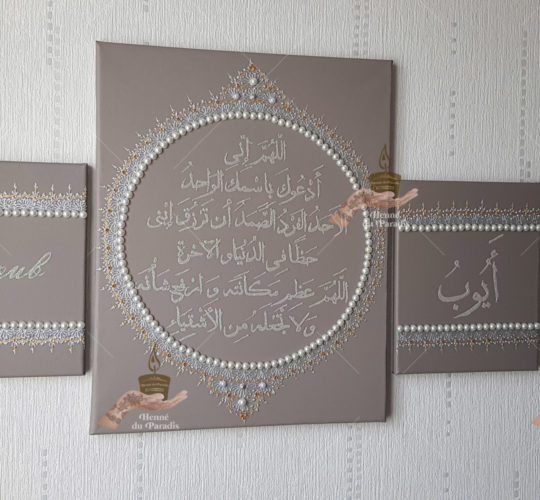 اللهم إني
أدعوك باسمك الواحد
الفرد الصمد أن ترزق إبني
حظا في الدنيا و الآخرة
اللهم عظم مكانته و ارفع شأنه
ولا تجعله من الأشقياء
أيوب
oub
Henné
du Paradis
Henné
du Paradis